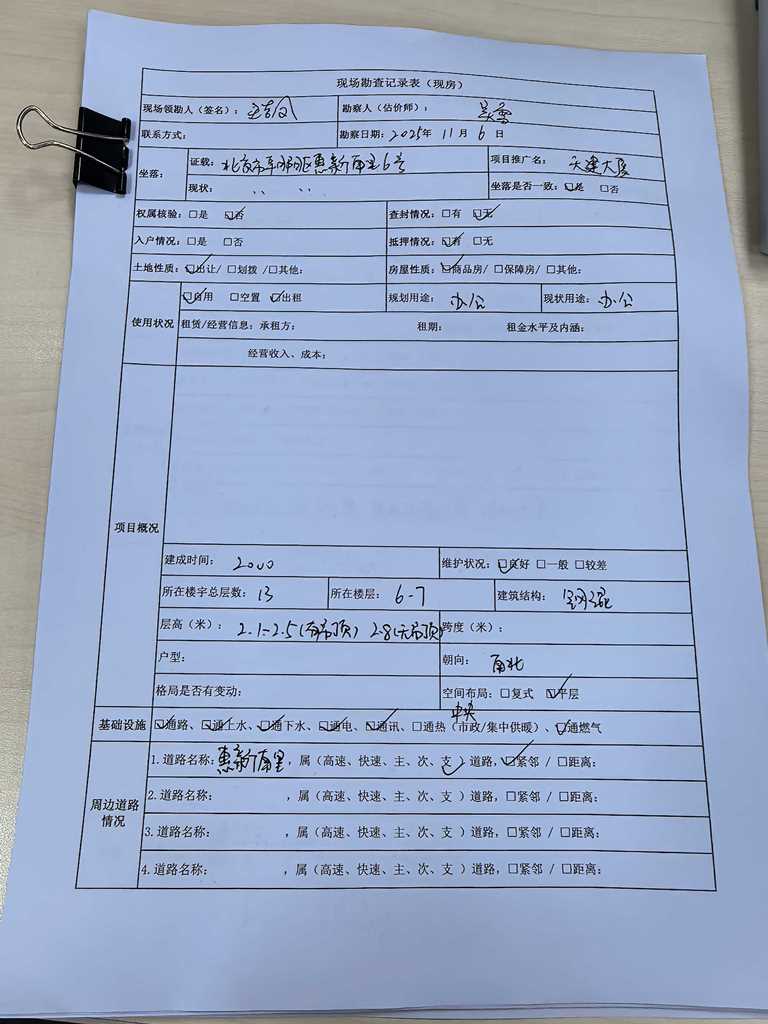 现场勘查记录表（现房）
现场领勘人（签名）： 勘察人（估价师）： 吴雪
联系方式： 勘察日期：2025年 11月 6日
坐落： 证载：北京市朝阳区惠新南里6号 项目推广名： 天建大厦
现状： 〃 〃 坐落是否一致：☑是 □否
权属核验：□是 ☑否 查封情况：□有 ☑无
入户情况：□是 □否 抵押情况：☑有 □无
土地性质：☑出让/□划拨 /□其他： 房屋性质：☑商品房/□保障房/□其他：
使用状况 ☑自用 □空置 ☑出租 规划用途： 办公 现状用途：办公
租赁/经营信息：承租方： 租期： 租金水平及内涵：
经营收入、成本：
项目概况
建成时间： 2000 维护状况：☑良好 □一般 □较差
所在楼宇总层数：13 所在楼层： 6-7 建筑结构： 钢混
层高（米）： 2.1-2.5(有吊顶) 2.8(无吊顶) 跨度（米）：
户型： 朝向： 南北
格局是否有变动： 空间布局：□复式 ☑平层
中央
基础设施 ☑通路、☑通上水、☑通下水、☑通电、☑通讯、□通热（市政/集中供暖）、☑通燃气
周边道路情况 1.道路名称：惠新南里，属（高速、快速、主、次、支✓）道路，☑紧邻 / □距离：
2.道路名称： ，属（高速、快速、主、次、支 ）道路，□紧邻 / □距离：
3.道路名称： ，属（高速、快速、主、次、支 ）道路，□紧邻 / □距离：
4.道路名称： ，属（高速、快速、主、次、支 ）道路，□紧邻 / □距离：